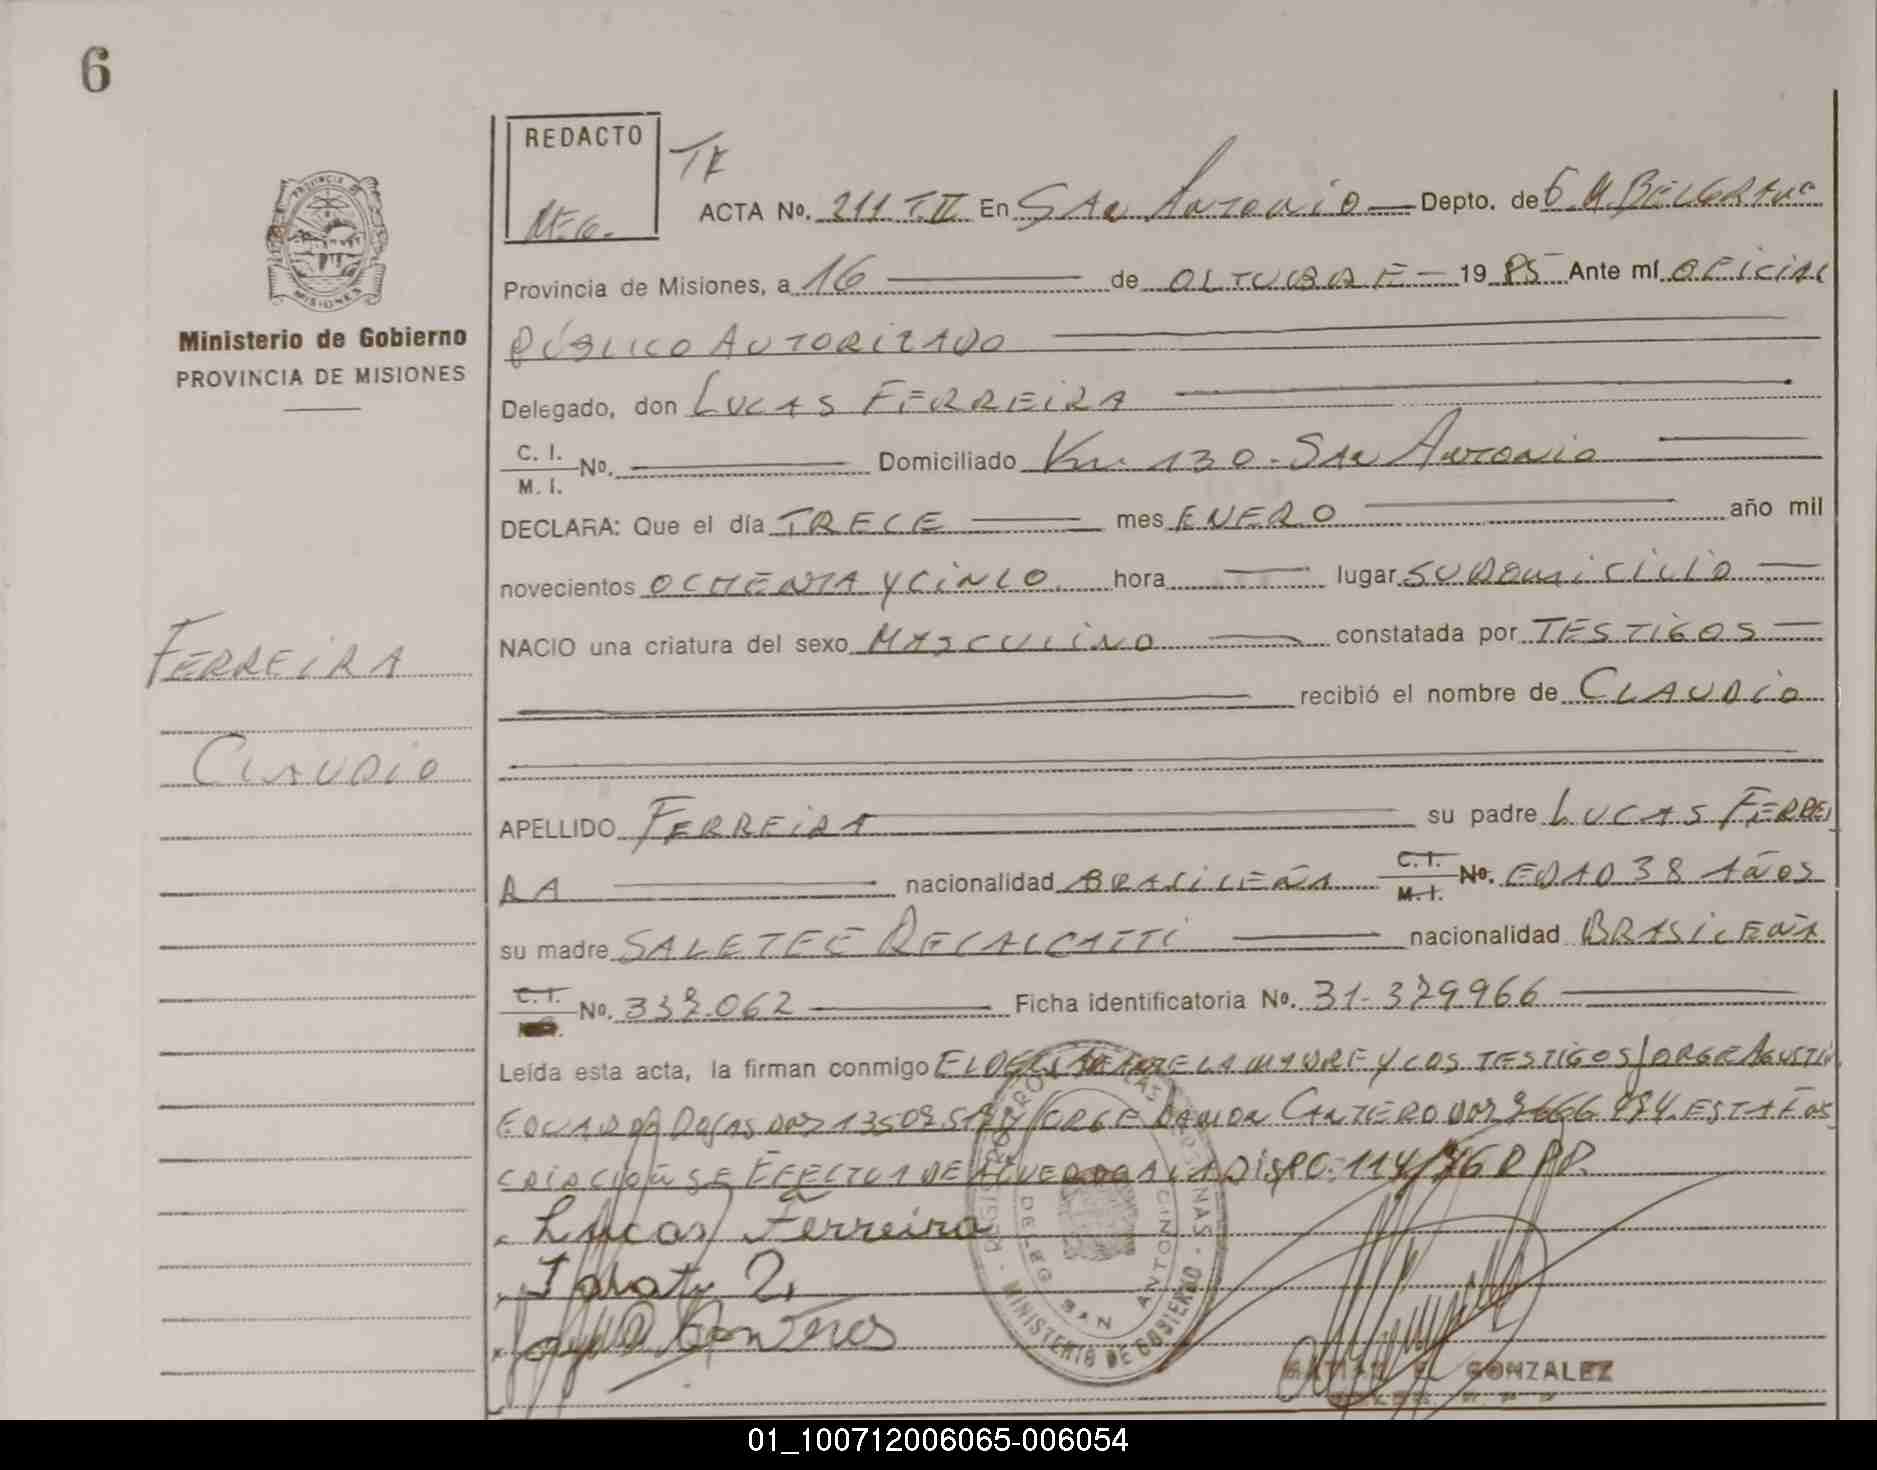 6
REDACTO
ACTA No. 211 T.II En San Antonio Depto. de G. M. BELGRANO
Provincia de Misiones, a 16 de OCTUBRE 1985 Ante mí OFICIAL
PÚBLICO AUTORIZADO
Delegado, don LUCAS FERREIRA
C. I.
M. I.
No. Domiciliado Km. 130 - San Antonio
DECLARA: Que el día TRECE mes ENERO año mil
novecientos OCHENTA Y CINCO hora lugar SU DOMICILIO
NACIO una criatura del sexo MASCULINO constatada por TESTIGOS
recibió el nombre de CLAUDIO
APELLIDO FERREIRA su padre LUCAS FERREI
RA nacionalidad BRASILEÑA C. I. M. I. No. EDAD 38 AÑOS
su madre SALETEE RECALCATTI nacionalidad BRASILEÑA
C. I. No. 062 Ficha identificatoria No. 31-379966
Leída esta acta, la firman conmigo EL DECLARANTE LA MADRE Y LOS TESTIGOS JORGE AGUSTIN
EDUARDO ROJAS JORGE RAMON CANTERO ESTA INS
CRIPCIÓN SE EFECTUA DE ACUERDO A LA DISPO: 114/76 D.P.P.
Lucas Ferreira
Canteros
PROVINCIA DE
MISIONES
Ministerio de Gobierno
PROVINCIA DE MISIONES
FERREIRA
CLAUDIO
REGISTRO DE LAS PERSONAS
MINISTERIO DE GOBIERNO
DELEG. SAN ANTONIO
GONZALEZ
01_100712006065-006054